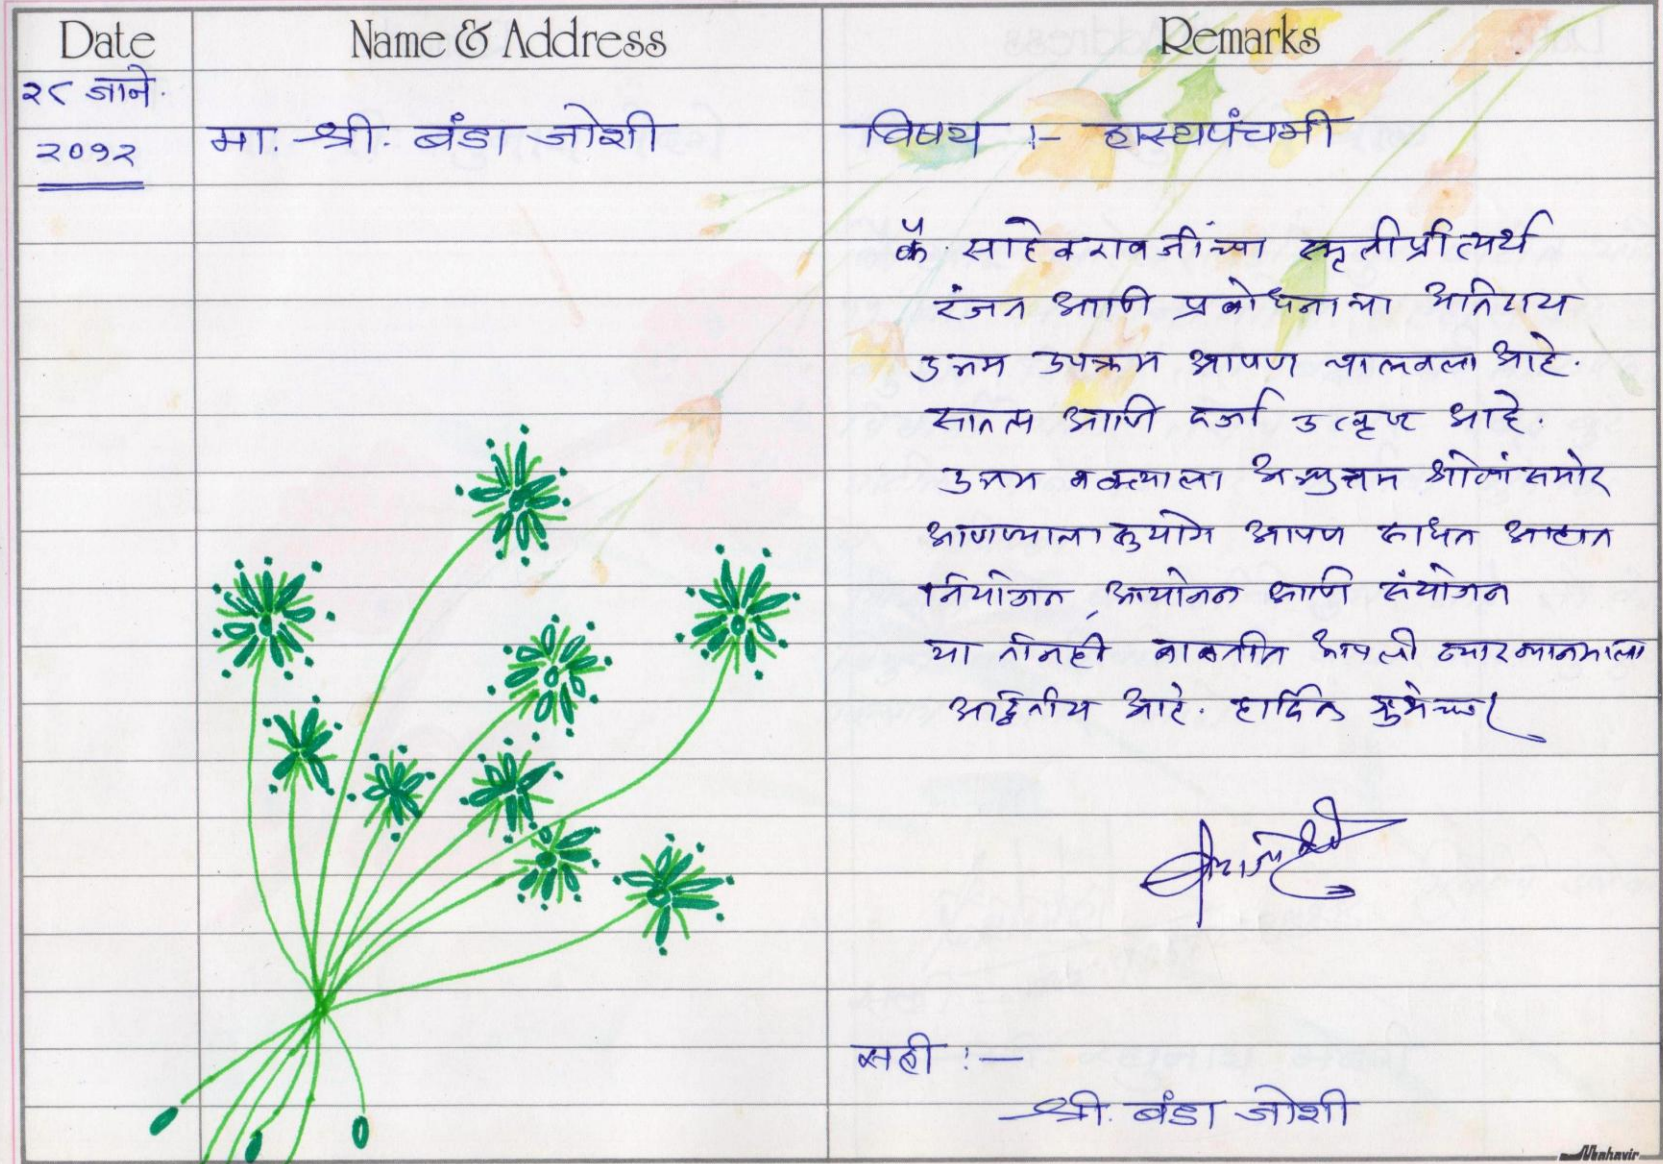 Date Name & Address Remarks
२८ जाने.
२०१२
मा. श्री. बंडा जोशी
विषय :- हास्यपंचमी
कै. साहेबरावजींच्या स्मृतीप्रीत्यर्थ
रंजन आणि प्रबोधनाचा अतिशय
उत्तम उपक्रम आपण चालवला आहे.
सातत्य आणि दर्जा उत्कृष्ट आहे.
उत्तम वक्त्याला अत्युत्तम श्रोत्यांसमोर
आणण्याचा सुयोग आपण साधत आहात
नियोजन, आयोजन आणि संयोजन
या तीनही बाबतीत आपली व्याख्यानमाला
अद्वितीय आहे. हार्दिक शुभेच्छा
सही :-
श्री. बंडा जोशी
Mahavir